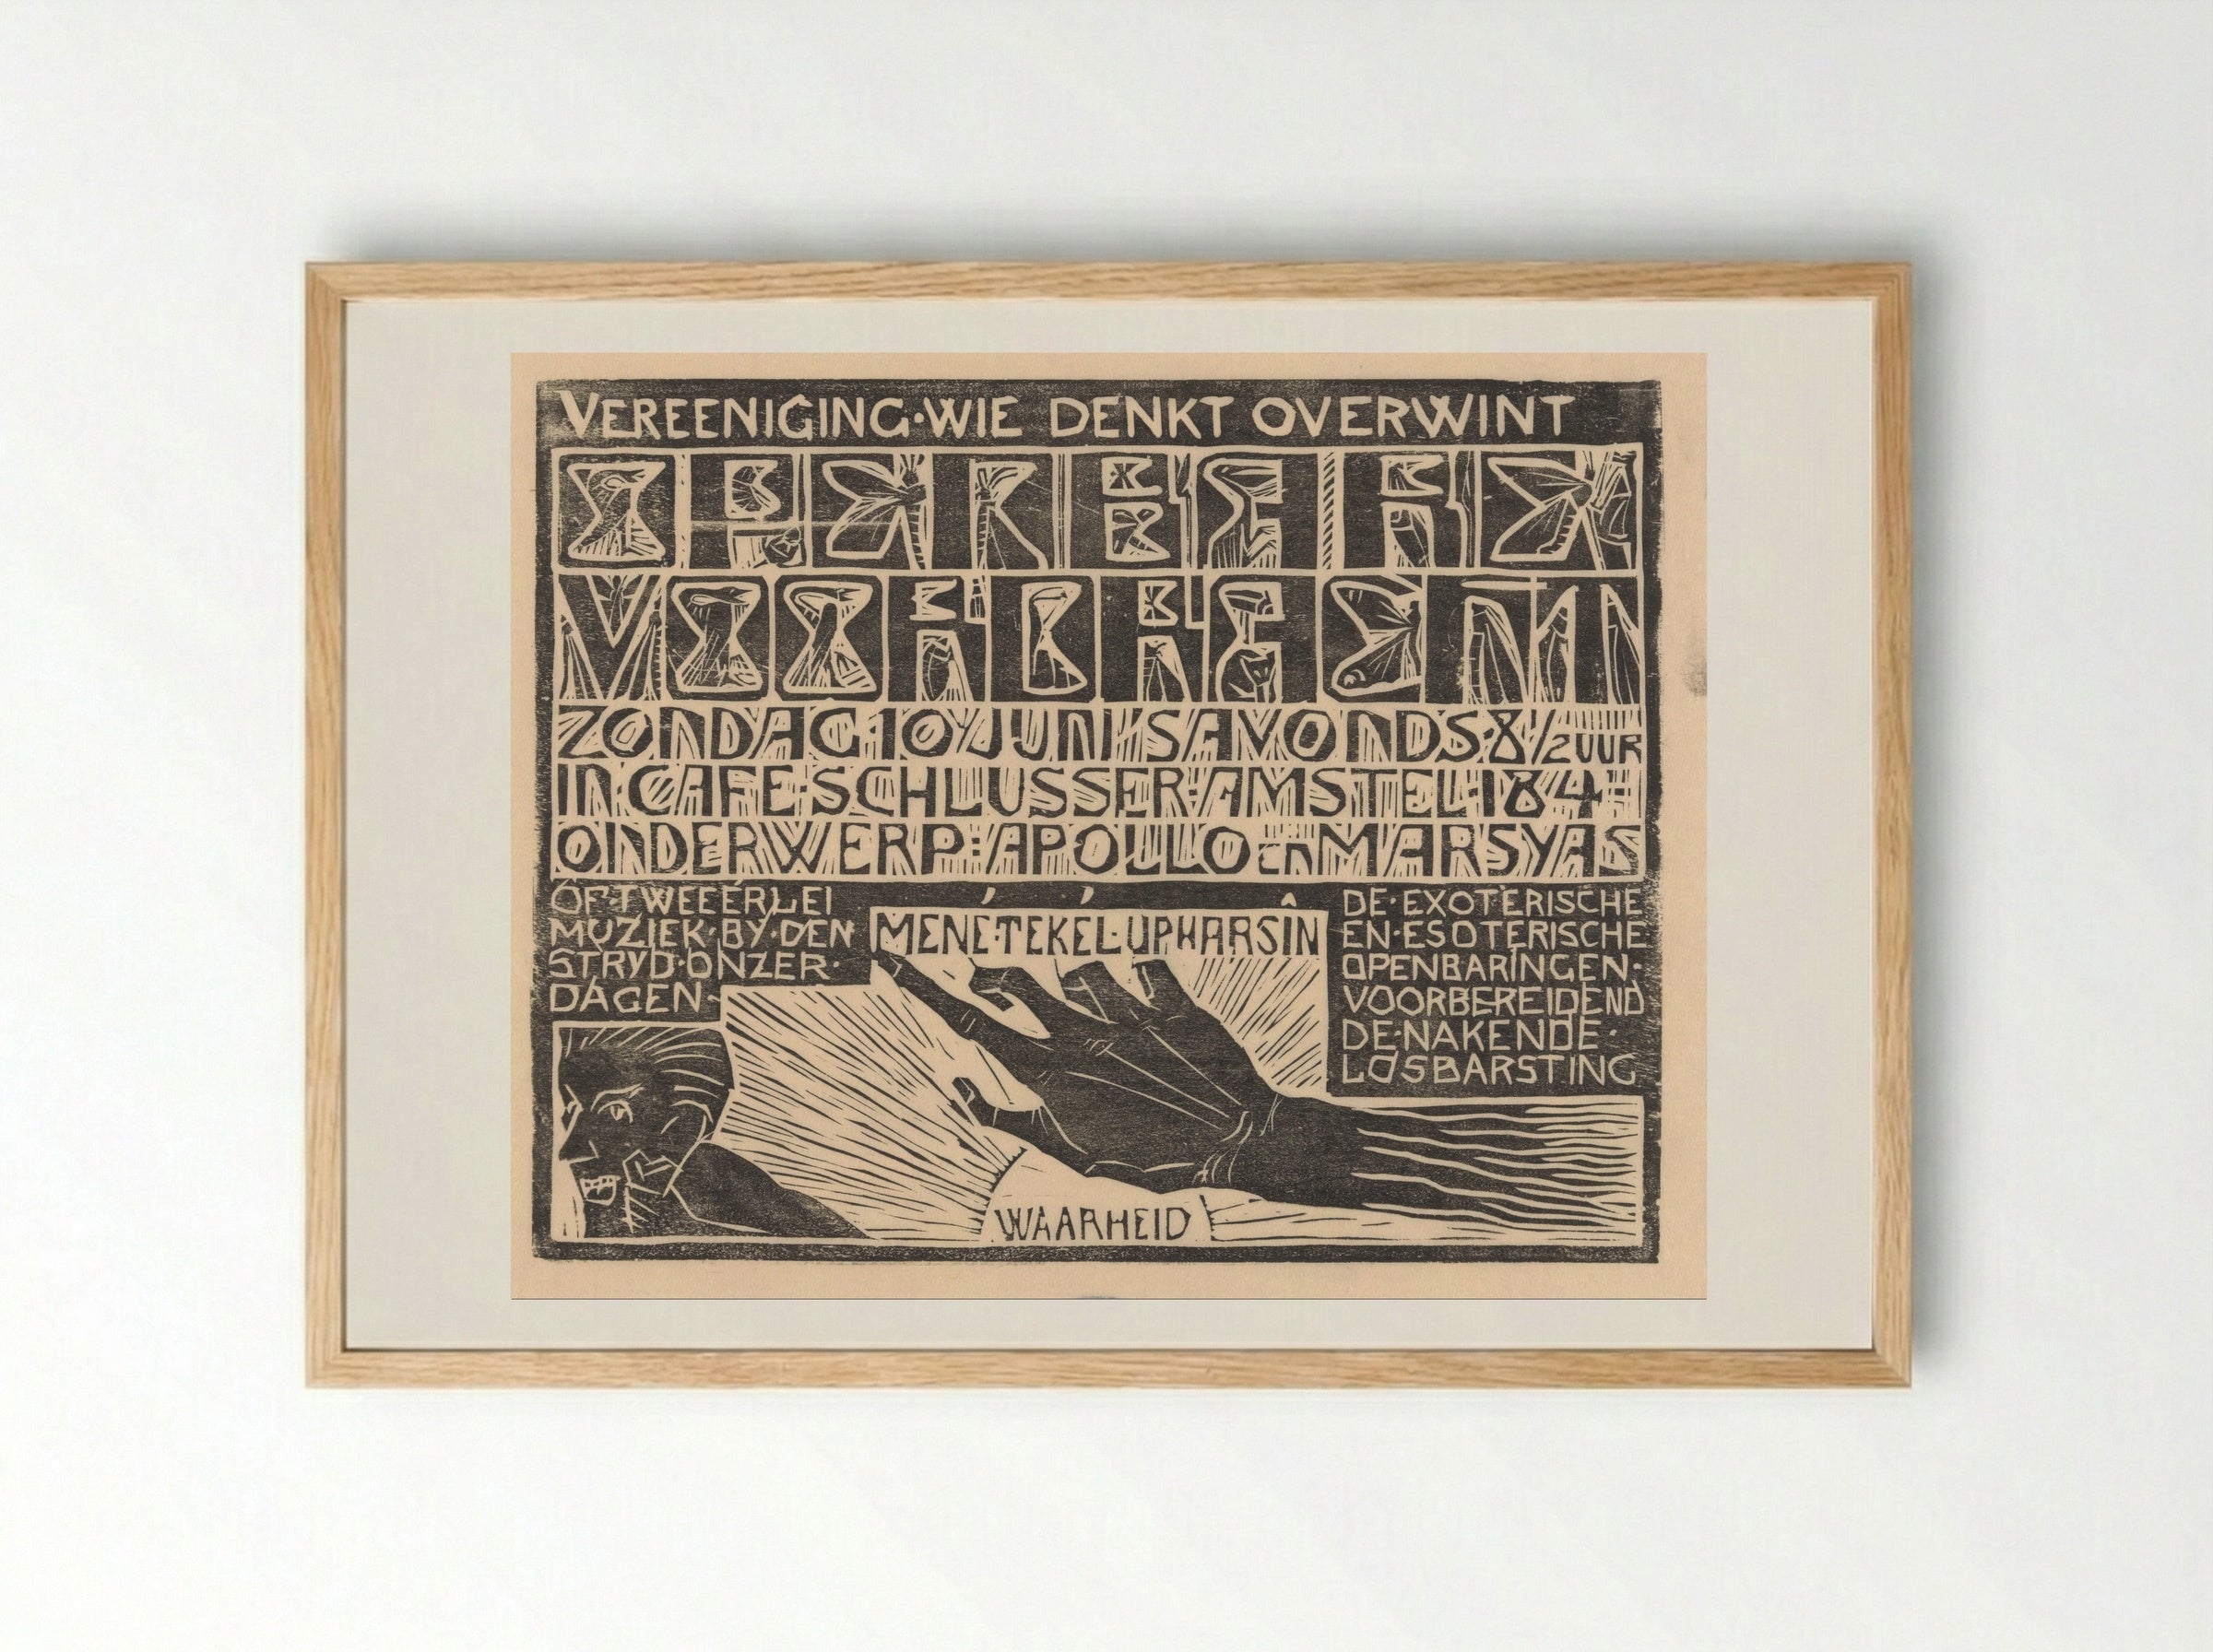 VEREENIGING·WIE DENKT OVERWINT
OPENBARE
VOORDRACHT
ZONDAG 10 JUNI 'S AVONDS 8 1/2 UUR
IN CAFE SCHLUSSER AMSTEL 184
ONDERWERP: APOLLO en MARSYAS
OF·TWEEËRLEI
MUZIEK·BY·DEN
STRYD·ONZER·
DAGEN
MENÉ·TEKÉL·UPHARSÎN
DE·EXOTERISCHE
EN·ESOTERISCHE
OPENBARINGEN·
VOORBEREIDEND
DE·NAKENDE·
LOSBARSTING
WAARHEID